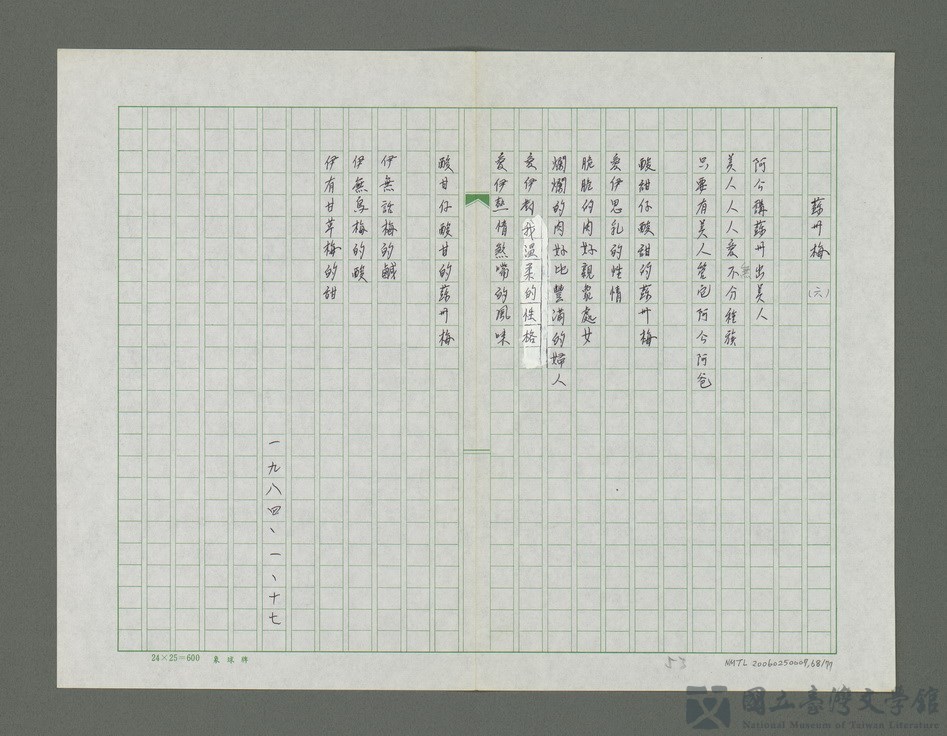 蘇丹梅 (六)
阿公講蘇丹出美人
美人人人愛不分種族
只要有美人管它阿公阿爸
酸甜仔酸甜的蘇丹梅
愛伊思乳的性情
脆脆的肉好親像處女
爛爛的肉好比豐滿的婦人
愛伊對我溫柔的性格
愛伊熱情煞嘴的風味
酸甘仔酸甘的蘇丹梅
伊無話梅的鹹
伊無烏梅的酸
伊有甘草梅的甜
一九八四、一、十七
24×25=600
53
NMTL 20060250009,68/77
國立臺灣文學館
National Museum of Taiwan Literature